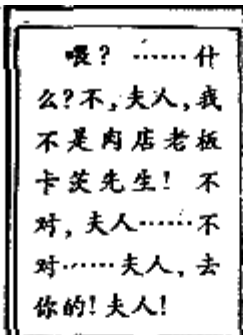 喂? ……什
么?不,夫人,我
不是肉店老板
卡茨先生! 不
对,夫人……不
对……夫人,去
你的!夫人!